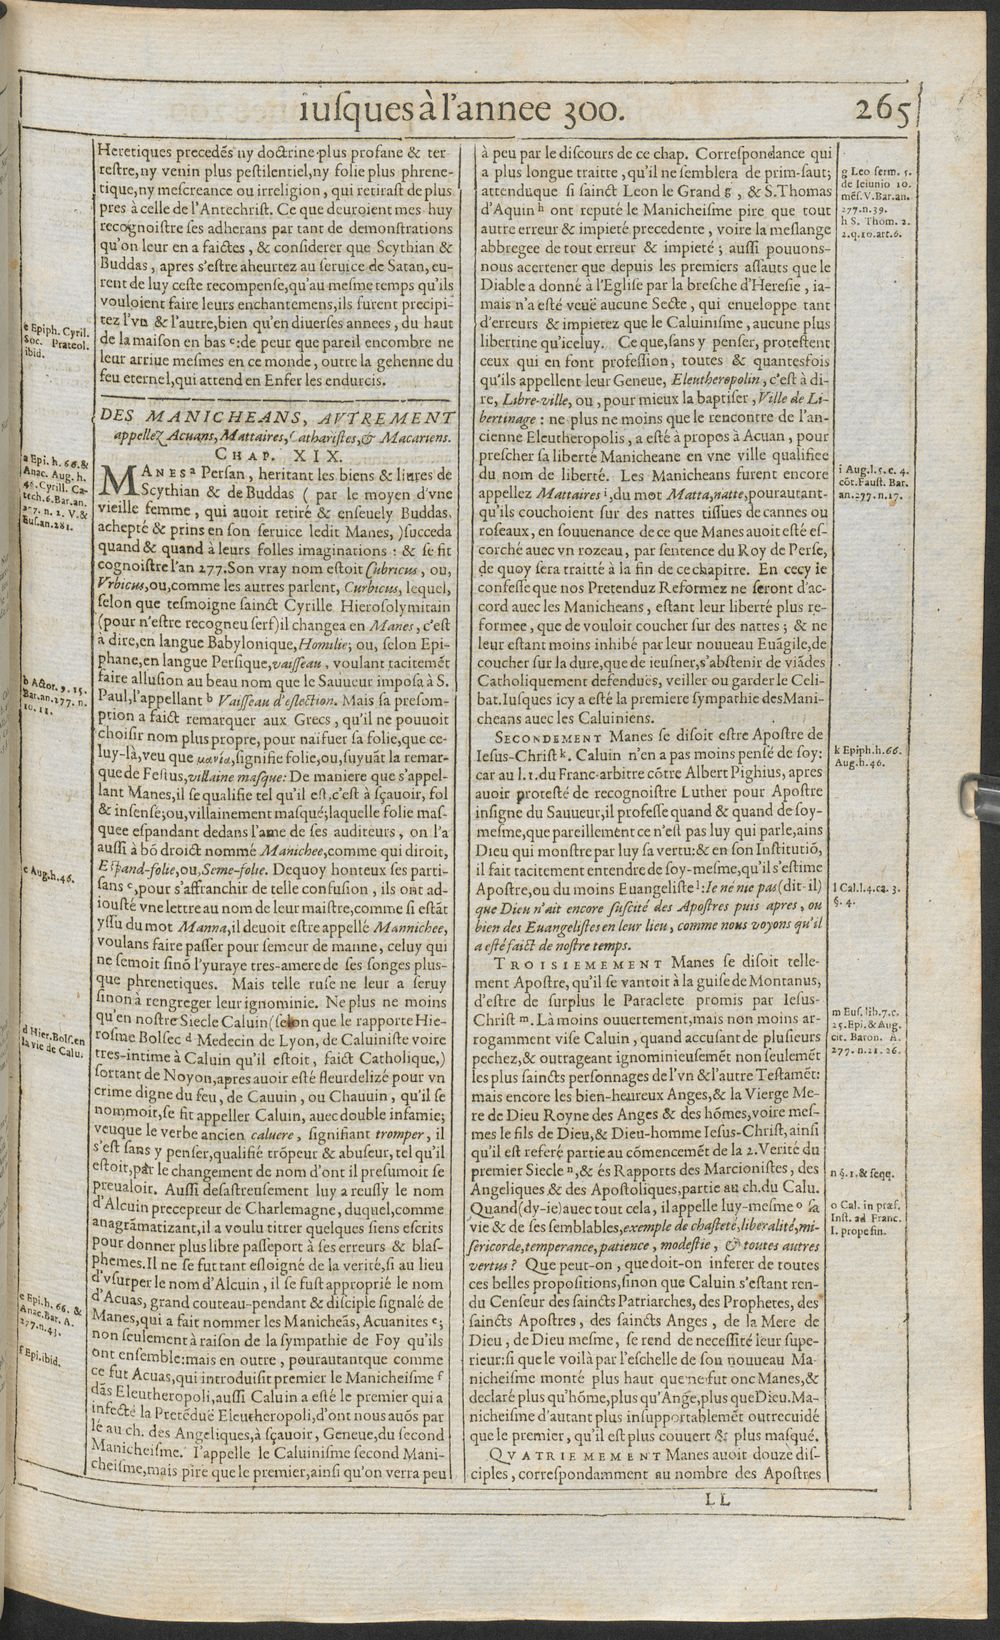 iuſques à l'annee 300.
265
Heretiques precedẽs ny doctrine plus profane & ter
reſtre, ny venin plus peſtilentiel, ny folie plus phrene-
tique, ny meſcreance ou irreligion, qui retiraſt de plus
pres à celle de l'Antechriſt. Ce que deuroient mes-huy
recognoiſtre ſes adherans par tant de demonſtrations
qu'on leur en a faictes, & conſiderer que Scythian &
Buddas, apres s'eſtre aheurtez au ſeruice de Satan, eu-
rent de luy ceſte recompenſe, qu'au meſme temps qu'ils
vouloient faire leurs enchantemens, ils furent precipi-
tez l'vn & l'autre, bien qu'en diuerſes annees, du haut
de la maiſon en bas e: de peur que pareil encombre ne
leur arriue meſmes en ce monde, outre la gehenne du
feu eternel, qui attend en Enfer les endurcis.
e Epiph. Cyril.
Soc. Prateol.
ibid.
DES MANICHEANS, AVTREMENT
appellez Acuans, Mattaires, Cathariſtes, & Macariens.
CHAP. XIX.
MANES a Perſan, heritant les biens & liures de
Scythian & de Buddas ( par le moyen d'vne
vieille femme, qui auoit retiré & enſeuely Buddas,
achepté & prins en ſon ſeruice ledit Manes, )ſucceda
quand & quand à leurs folles imaginations : & ſe fit
cognoiſtre l'an 277. Son vray nom eſtoit Cubricus, ou,
Vrbicus, ou, comme les autres parlent, Curbicus, lequel,
ſelon que teſmoigne ſainct Cyrille Hieroſolymitain
(pour n'eſtre recogneu ſerf) il changea en Manes, c'eſt
à dire, en langue Babylonique, Homilie; ou, ſelon Epi-
phane, en langue Perſique, vaiſſeau, voulant tacitemẽt
faire alluſion au beau nom que le Sauueur impoſa à S.
Paul, l'appellant b Vaiſſeau d'eſlection. Mais ſa preſom-
ption a faict remarquer aux Grecs, qu'il ne pouuoit
choiſir nom plus propre, pour naifuer ſa folie, que ce-
luy-là, veu que μανία, ſignifie folie, ou, ſuyuãt la remar-
que de Feſtus, villaine maſque: De maniere que s'appel-
lant Manes, il ſe qualifie tel qu'il eſt, c'eſt à ſçauoir, fol
& inſensé; ou, villainement maſqué; laquelle folie maſ-
quee eſpandant dedans l'ame de ſes auditeurs, on l'a
auſſi à bõ droict nommé Manichee, comme qui diroit,
Eſpand-folie, ou, Seme-folie. Dequoy honteux ſes parti-
ſans c, pour s'affranchir de telle confuſion, ils ont ad-
iouſté vne lettre au nom de leur maiſtre, comme ſi eſtãt
yſſu du mot Manna, il deuoit eſtre appellé Mannichee,
voulans faire paſſer pour ſemeur de manne, celuy qui
ne ſemoit ſinõ l'yuraye tres-amere de ſes ſonges plus-
que phrenetiques. Mais telle ruſe ne leur a ſeruy
ſinon à rengreger leur ignominie. Ne plus ne moins
qu'en noſtre Siecle Caluin (ſelon que le rapporte Hie-
roſme Bolſec d Medecin de Lyon, de Caluiniſte voire
tres-intime à Caluin qu'il eſtoit, faict Catholique,)
ſortant de Noyon, apres auoir eſté fleurdelizé pour vn
crime digne du feu, de Cauuin, ou Chauuin, qu'il ſe
nommoit, ſe fit appeller Caluin, auec double infamie;
veuque le verbe ancien caluere, ſignifiant tromper, il
s'eſt ſans y penſer, qualifié trõpeur & abuſeur, tel qu'il
eſtoit, par le changement de nom d'ont il preſumoit ſe
preualoir. Auſſi deſaſtreuſement luy a reuſſy le nom
d'Alcuin precepteur de Charlemagne, duquel, comme
anagrãmatizant, il a voulu titrer quelques ſiens eſcrits
pour donner plus libre paſſeport à ſes erreurs & blaſ-
phemes. Il ne ſe fut tant eſloigné de la verité, ſi au lieu
d'vſurper le nom d'Alcuin, il ſe fuſt approprié le nom
d'Acuas, grand couteau-pendant & diſciple ſignalé de
Manes, qui a fait nommer les Manicheãs, Acuanites e;
non ſeulement à raiſon de la ſympathie de Foy qu'ils
ont enſemble: mais en outre, pourautantque comme
ce fut Acuas, qui introduiſit premier le Manicheiſme f
dãs Eleutheropoli, auſſi Caluin a eſté le premier qui a
infecté la Pretẽduë Eleutheropoli, d'ont nous auõs par
lé au ch. des Angeliques, à ſçauoir, Geneue, du ſecond
Manicheiſme. I'appelle le Caluiniſme ſecond Mani-
cheiſme, mais pire que le premier, ainſi qu'on verra peu
a Epi. h. 66. &
Anac. Aug. h.
46. Cyrill. Ca-
tech. 6. Bar. an.
277. n. 1. V. &
Euſ. an. 281.
b Actor. 9. 15.
Bar. an. 277. n.
10. 11.
c Aug. h. 46.
d Hier. Bolſ. en
la vie de Calu.
e Epi. h. 66. &
Anac. Bar. A.
277. n. 43.
f Epi. ibid.
à peu par le diſcours de ce chap. Correſpondance qui
a plus longue traitte, qu'il ne ſemblera de prim-ſaut;
attenduque ſi ſainct Leon le Grand g, & S. Thomas
d'Aquin h ont reputé le Manicheiſme pire que tout
autre erreur & impieté precedente, voire la meſlange
abbregee de tout erreur & impieté ; auſſi pouuons-
nous acertener que depuis les premiers aſſauts que le
Diable a donné à l'Egliſe par la breſche d'Hereſie, ia-
mais n'a eſté veuë aucune Secte, qui enueloppe tant
d'erreurs & impietez que le Caluiniſme, aucune plus
libertine qu'iceluy. Ce que, ſans y penſer, proteſtent
ceux qui en font profeſſion, toutes & quantesfois
qu'ils appellent leur Geneue, Eleutheropolin, c'eſt à di-
re, Libre-ville, ou, pour mieux la baptiſer, Ville de Li-
bertinage : ne plus ne moins que le rencontre de l'an-
cienne Eleutheropolis, a eſté à propos à Acuan, pour
preſcher ſa liberté Manicheane en vne ville qualifiee
du nom de liberté. Les Manicheans furent encore
appellez Mattaires i, du mot Matta, natte, pourautant-
qu'ils couchoient ſur des nattes tiſſues de cannes ou
roſeaux, en ſouuenance de ce que Manes auoit eſté eſ-
corché auec vn rozeau, par ſentence du Roy de Perſe,
de quoy ſera traitté à la fin de ce chapitre. En cecy ie
confeſſe que nos Pretenduz Reformez ne ſeront d'ac-
cord auec les Manicheans, eſtant leur liberté plus re-
formee, que de vouloir coucher ſur des nattes ; & ne
leur eſtant moins inhibé par leur nouueau Euãgile, de
coucher ſur la dure, que de ieuſner, s'abſtenir de viãdes
Catholiquement defenduës, veiller ou garder le Celi-
bat. Iuſques icy a eſté la premiere ſympathie des Mani-
cheans auec les Caluiniens.
SECONDEMENT Manes ſe diſoit eſtre Apoſtre de
Ieſus-Chriſt k. Caluin n'en a pas moins penſé de ſoy:
car au l. 1. du Franc-arbitre cõtre Albert Pighius, apres
auoir proteſté de recognoiſtre Luther pour Apoſtre
inſigne du Sauueur, il profeſſe quand & quand de ſoy-
meſme, que pareillement ce n'eſt pas luy qui parle, ains
Dieu qui monſtre par luy ſa vertu: & en ſon Inſtitutiõ,
il fait tacitement entendre de ſoy-meſme, qu'il s'eſtime
Apoſtre, ou du moins Euangeliſte l: Ie ne nie pas (dit-il)
que Dieu n'ait encore ſuſcité des Apoſtres puis apres, ou
bien des Euangeliſtes en leur lieu, comme nous voyons qu'il
a eſté faict de noſtre temps.
TROISIEMEMENT Manes ſe diſoit telle-
ment Apoſtre, qu'il ſe vantoit à la guiſe de Montanus,
d'eſtre de ſurplus le Paraclete promis par Ieſus-
Chriſt m. Là moins ouuertement, mais non moins ar-
rogamment viſe Caluin, quand accuſant de pluſieurs
pechez, & outrageant ignominieuſemẽt non ſeulemẽt
les plus ſaincts perſonnages de l'vn & l'autre Teſtamẽt:
mais encore les bien-heureux Anges, & la Vierge Me-
re de Dieu Royne des Anges & des hõmes, voire meſ-
mes le fils de Dieu, & Dieu-homme Ieſus-Chriſt, ainſi
qu'il eſt referé partie au cõmencemẽt de la 2. Verité du
premier Siecle n, & és Rapports des Marcioniſtes, des
Angeliques & des Apoſtoliques, partie au ch. du Calu.
Quand (dy-ie) auec tout cela, il appelle luy-meſme o ſa
vie & de ſes ſemblables, exemple de chaſteté, liberalité, mi-
ſericorde, temperance, patience, modeſtie, & toutes autres
vertus? Que peut-on, que doit-on inferer de toutes
ces belles propoſitions, ſinon que Caluin s'eſtant ren-
du Cenſeur des ſaincts Patriarches, des Prophetes, des
ſaincts Apoſtres, des ſaincts Anges, de la Mere de
Dieu, de Dieu meſme, ſe rend de neceſſité leur ſupe-
rieur: ſi que le voilà par l'eſchelle de ſou nouueau Ma-
nicheiſme monté plus haut que ne fut onc Manes, &
declaré plus qu'hõme, plus qu'Ange, plus que Dieu. Ma-
nicheiſme d'autant plus inſupportablemẽt outrecuidé
que le premier, qu'il eſt plus couuert & plus maſqué.
QVATRIEMEMENT Manes auoit douze diſ-
ciples, correſpondamment au nombre des Apoſtres
g Leo ſerm. 5.
de Ieiunio 10.
mẽſ. V. Bar. an.
277. n. 39.
h S. Thom. 2.
2. q. 10. art. 6.
i Aug. l. 5. c. 4.
cõt. Fauſt. Bar.
an. 277. n. 17.
k Epiph. h. 66.
Aug. h. 46.
l Cal. l. 4. ca. 3.
§. 4.
m Euſ. lib. 7. c.
25. Epi. & Aug.
cit. Baron. A.
277. n. 21. 26.
n §. 1. & ſeqq.
o Cal. in præf.
Inſt. ad Franc.
I. prope fin.
LL